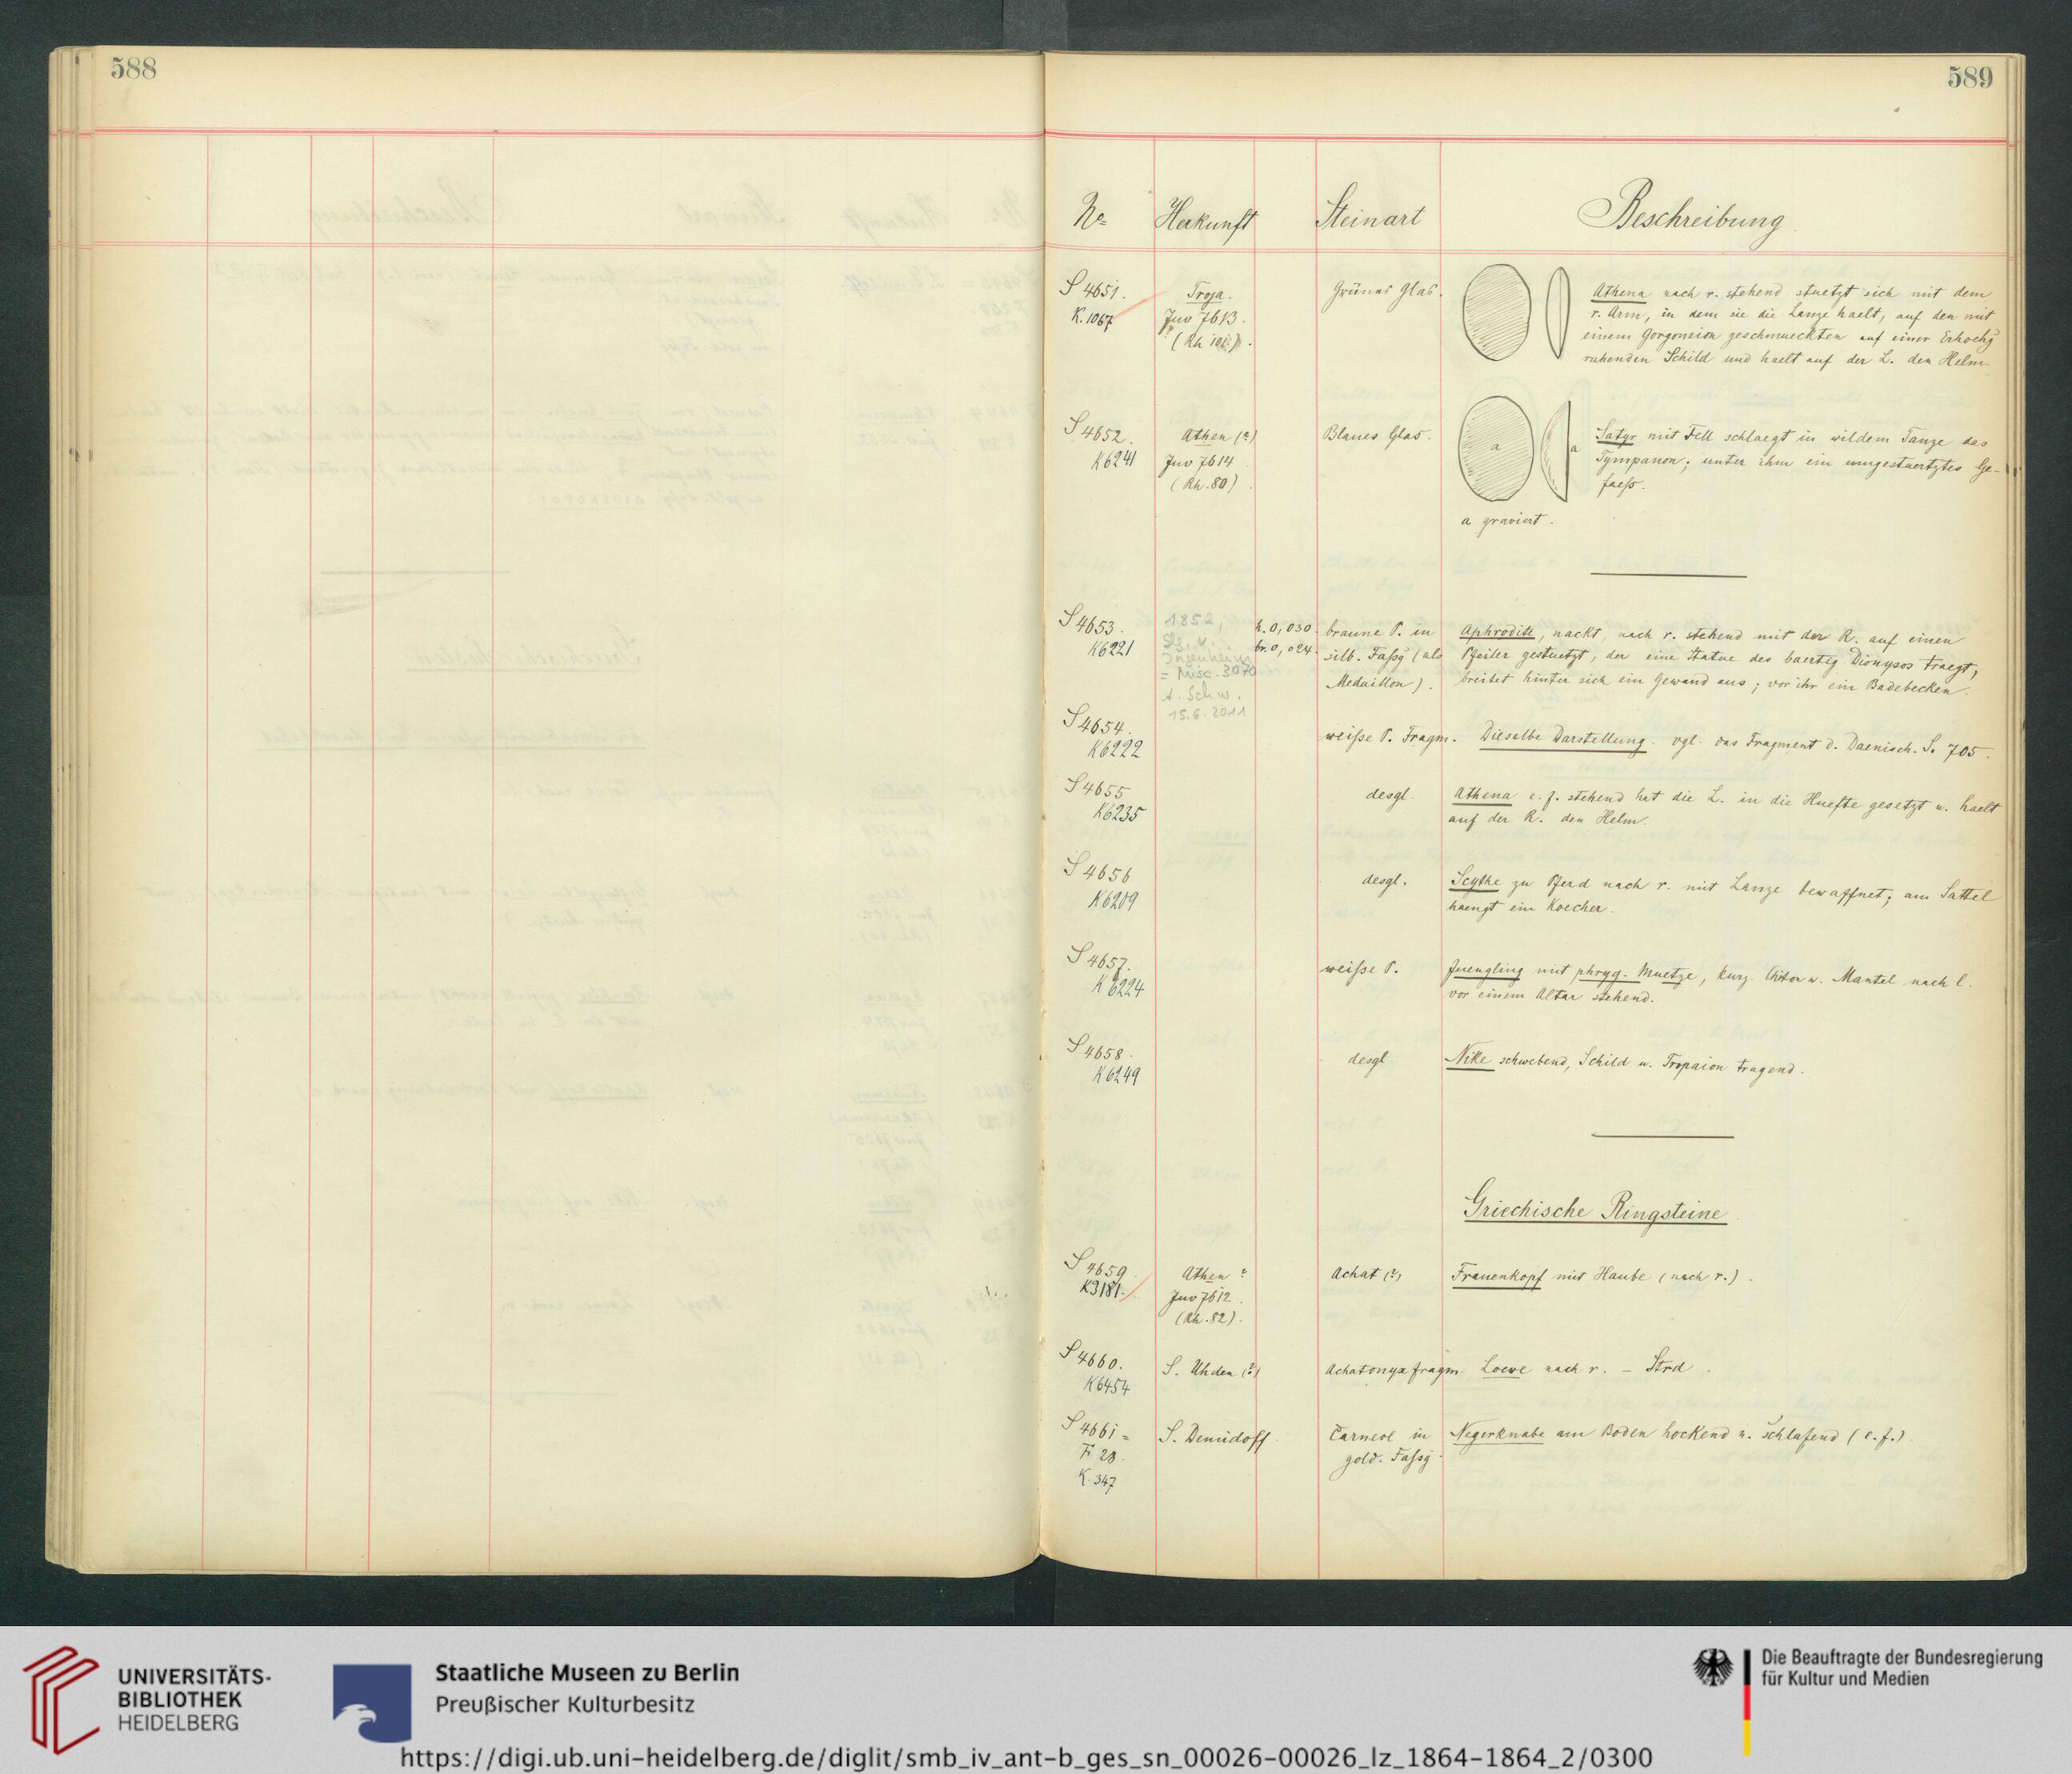 588
589
No Herkunft Steinart Beschreibung
S 4651. Troja. Grünes Glas. Athena nach r. stehend stuetzt sich mit dem
K. 1067 Inv 7613. r. Arm, in dem sie die Lanze haelt, auf den mit
(Rh 101). einem Gorgoneion geschmueckten auf einer Erhoehg
ruhenden Schild und haelt auf der L. den Helm.
S 4652. Athen (?) Blaues Glas. a a Satyr mit Fell schlaegt in wildem Tanze das
K 6241 Inv 7614 Tympanon; unter ihm ein umgestuertztes Ge-
(Rh. 80). faeß.
a graviert.
S 4653. 1852, h. 0,030. braune P. in Aphrodite, nackt, nach r. stehend mit der R. auf einen
K6221 Slg. v. br. 0,024. silb. Faßg (als Pfeiler gestuetzt, der eine Statue des baertig Dionysos traegt,
Ingenheim Medaillon). breitet hinter sich ein Gewand aus; vor ihr ein Badebecken.
= Misc. 3070
A. Schw.
15.6.2011
S 4654. weiße P. Fragm. Dieselbe Darstellung. vgl. das Fragment d. Daenisch. S. 705.
K6222
S 4655 desgl. Athena e. f. stehend hat die L. in die Huefte gesetzt u. haelt
K6235 auf der R. den Helm.
S 4656 desgl. Scythe zu Pferd nach r. mit Lanze bewaffnet; am Sattel
K6209 haengt ein Koecher.
S 4657. weiße P. Juengling mit phryg. Muetze, kurz. Chiton u. Mantel nach l.
K 6224 vor einem Altar stehend.
S 4658. desgl Nike schwebend, Schild u. Tropaion tragend.
K 6249
Griechische Ringsteine
S 4659. Athen ? Achat (?) Frauenkopf mit Haube (nach r.).
K3181. Inv 7612.
(Rh. 82).
S 4660. S. Uhden (?) Achatonyxfragm. Loewe nach r. – Strd.
K6454
S 4661 = S. Demidoff Carneol in Negerknabe am Boden hockend u. schlafend (e. f.)
F 28. gold. Faßg.
K. 347
UNIVERSITÄTS-
BIBLIOTHEK
HEIDELBERG
Staatliche Museen zu Berlin
Preußischer Kulturbesitz
Die Beauftragte der Bundesregierung
für Kultur und Medien
https://digi.ub.uni-heidelberg.de/diglit/smb_iv_ant-b_ges_sn_00026-00026_lz_1864-1864_2/0300